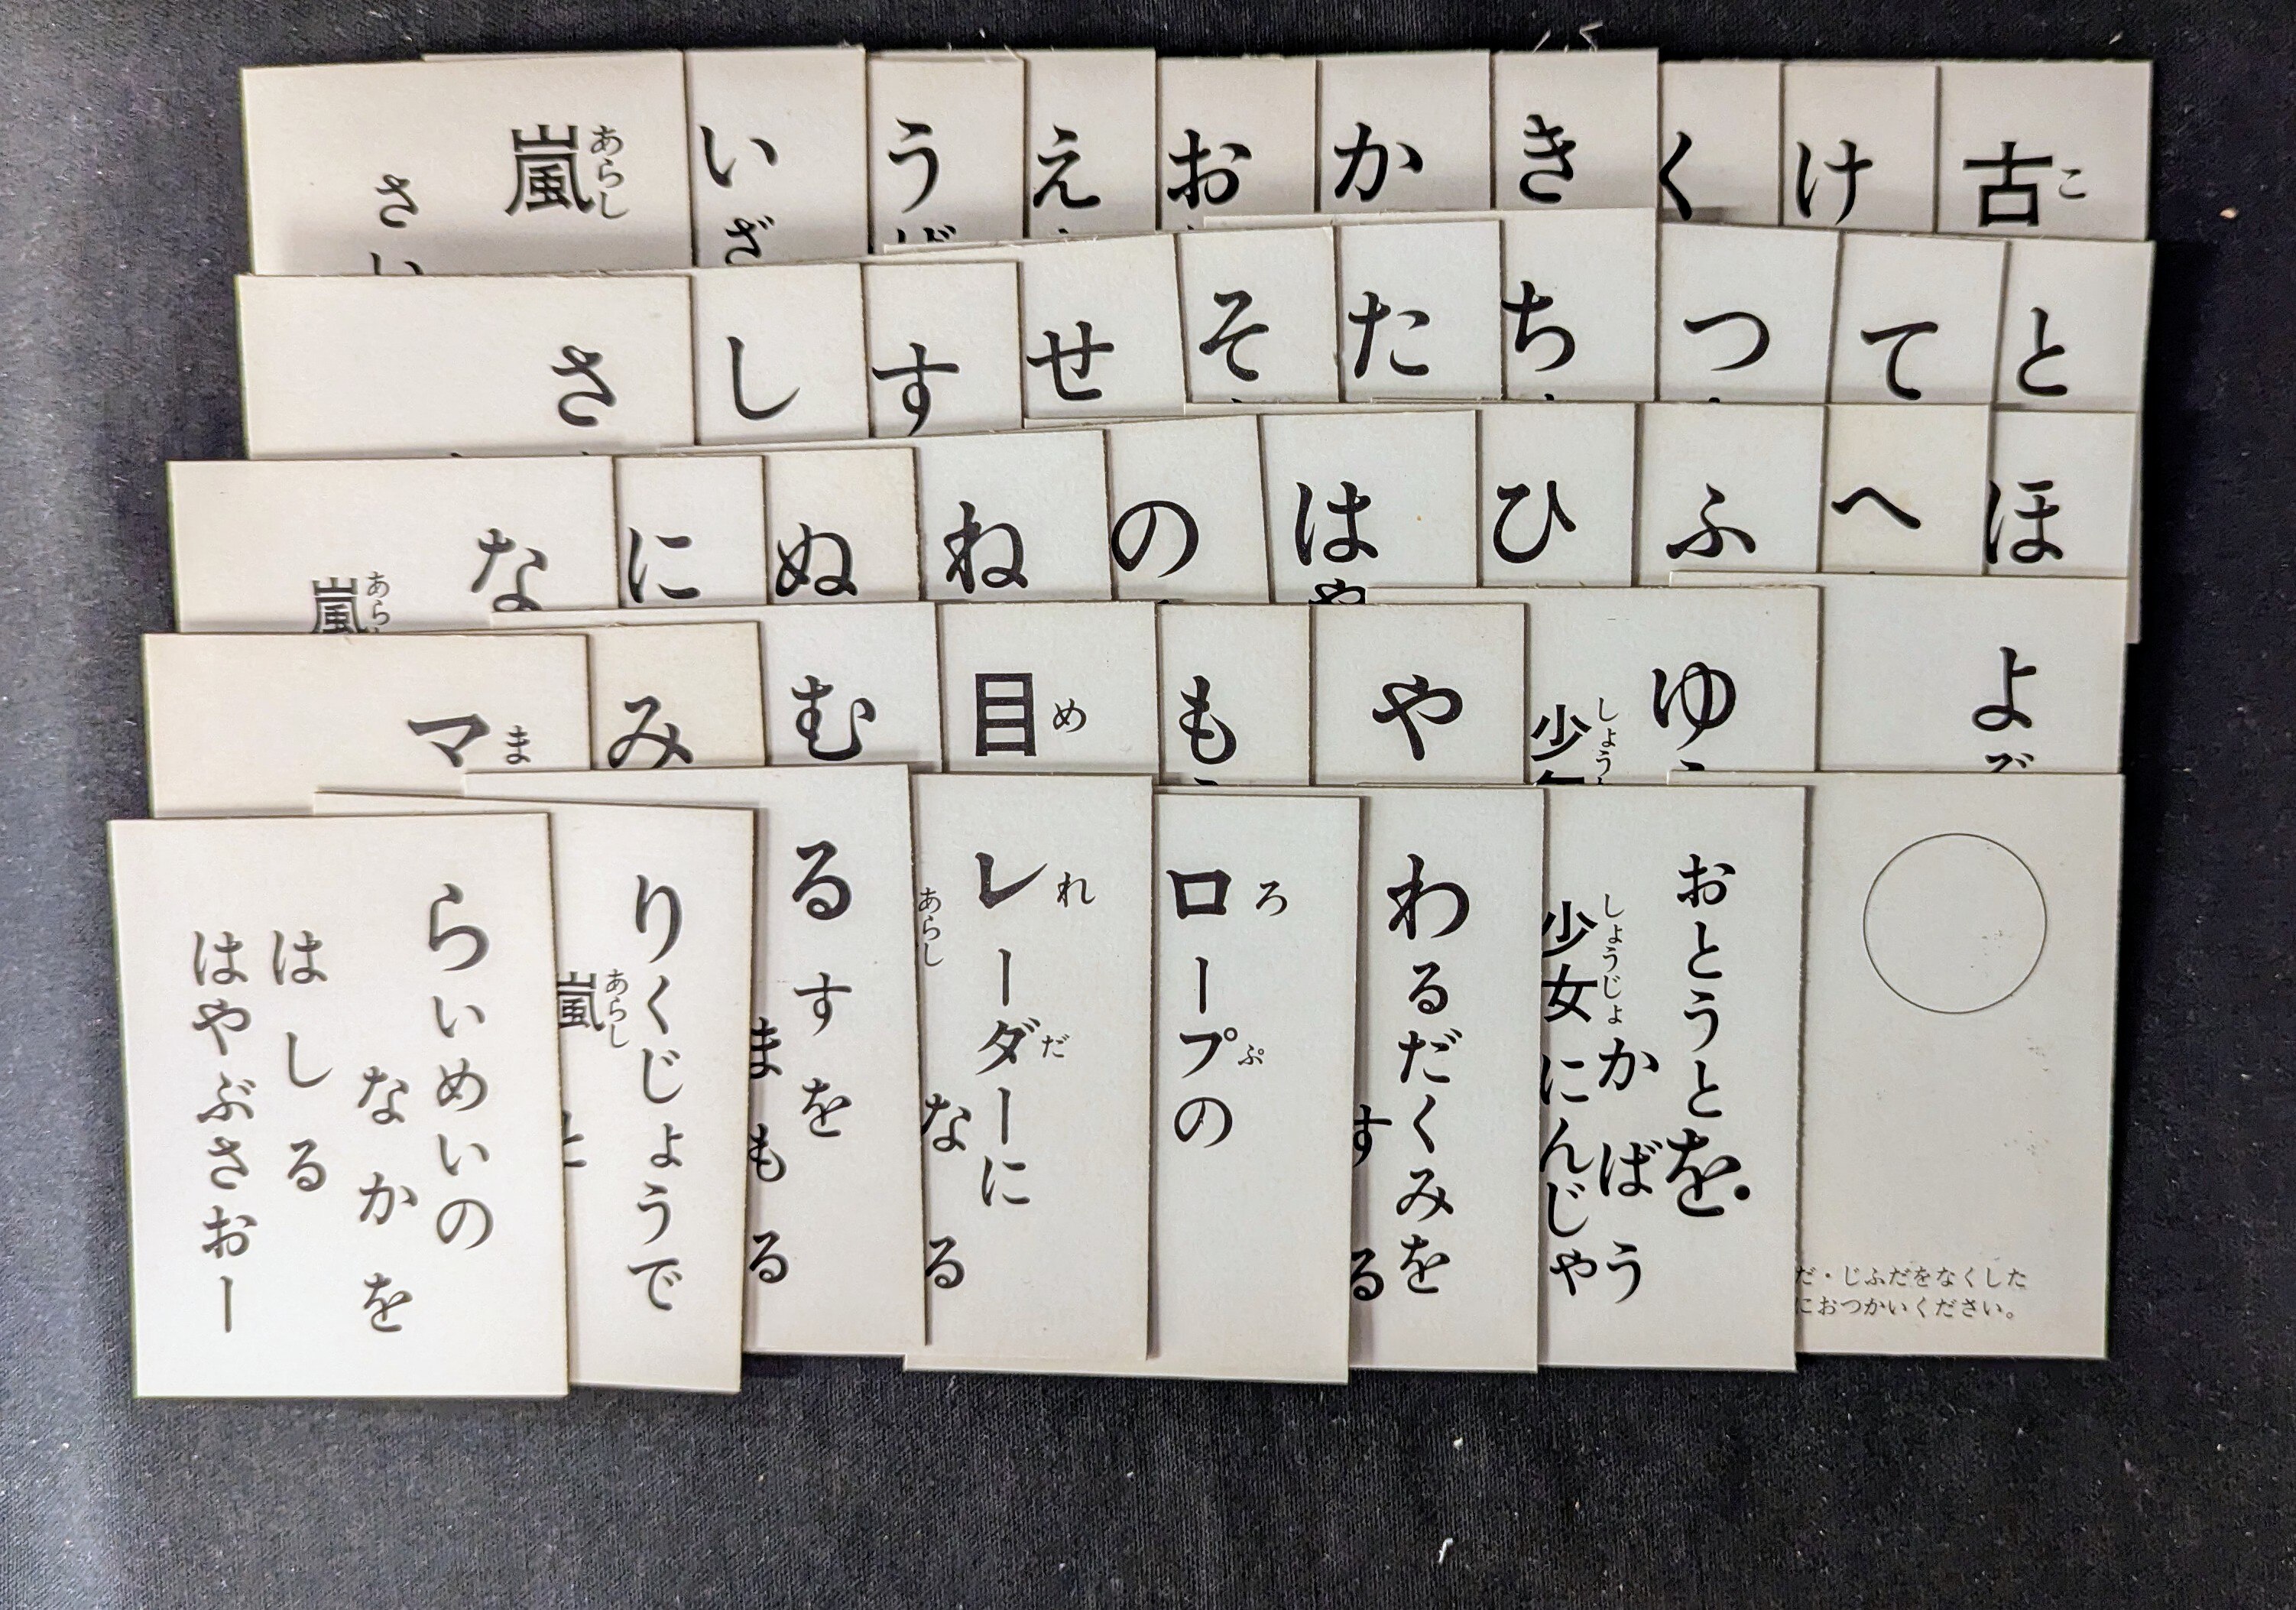 嵐 あらし
さい
いざ
う
え
お
か
き
く
け
古 こ
さ
し
す
せ
そ
た
ち
つ
て
と
な
嵐 あら
に
ぬ
ね
の
はや
ひ
ふ
へ
ほ
マ ま
み
む
目 め
も
や
ゆ
少 しょう
よ
らいめいの
なかを
はしる
はやぶさおー
りくじょうで
嵐 あらし
るすを
まもる
レーダーに れ だ
あらし
なる
ロープの ろ ぷ
わるだくみを
する
おとうとを
かばう
少女にんじゃ しょうじょ
だ・じふだをなくした
におつかいください。